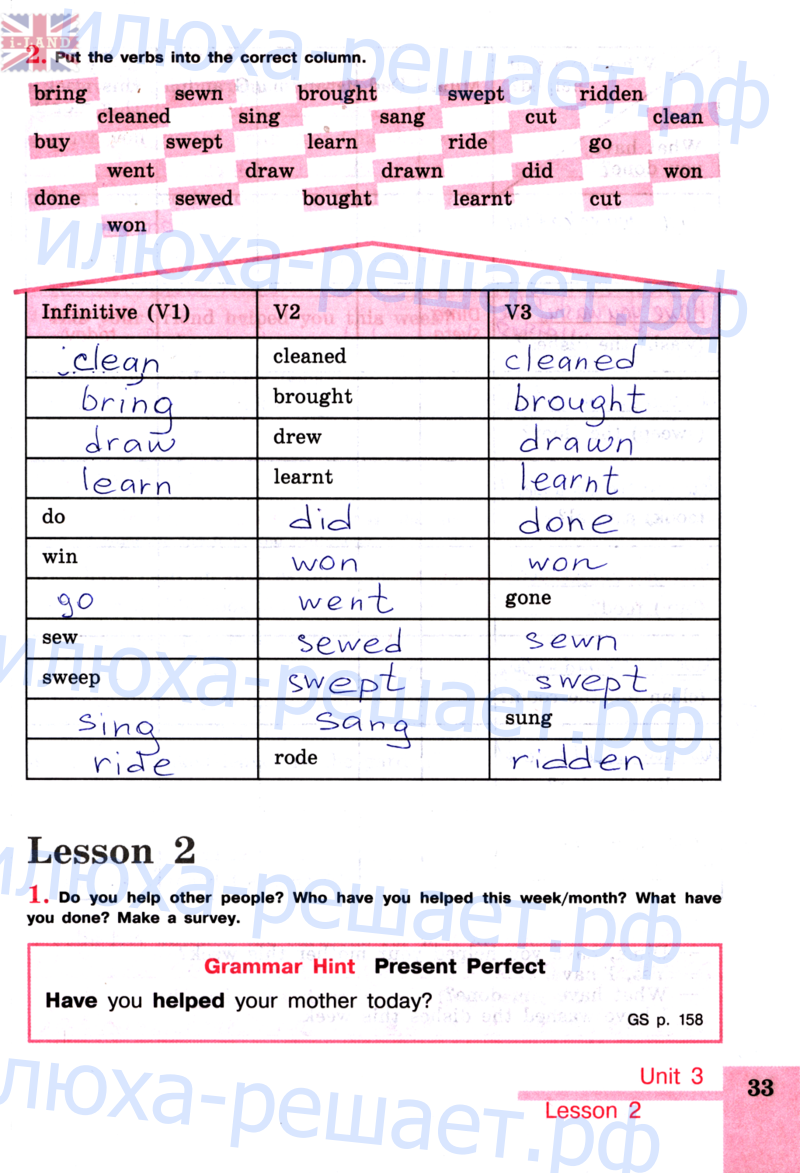 i-LAND
2. Put the verbs into the correct column.
bring sewn brought swept ridden
cleaned sing sang cut clean
buy swept learn ride go
went draw drawn did won
done sewed bought learnt cut
won
Infinitive (V1) V2 V3
clean cleaned cleaned
bring brought brought
draw drew drawn
learn learnt learnt
do did done
win won won
go went gone
sew sewed sewn
sweep swept swept
sing sang sung
ride rode ridden
Lesson 2
1. Do you help other people? Who have you helped this week/month? What have
you done? Make a survey.
Grammar Hint Present Perfect
Have you helped your mother today?
GS p. 158
Unit 3
Lesson 2
33
илюха-решает.рф
илюха-решает.рф
илюха-решает.рф
илюха-решает.рф
илюха-решает.рф